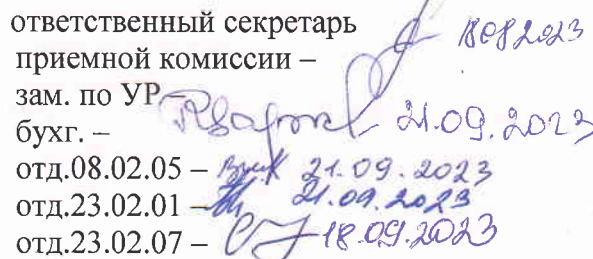 ответственный секретарь
приемной комиссии – 18.09.2023
зам. по УР –
бухг. – 21.09.2023
отд.08.02.05 – 21.09.2023
отд.23.02.01 – 21.09.2023
отд.23.02.07 – 18.09.2023